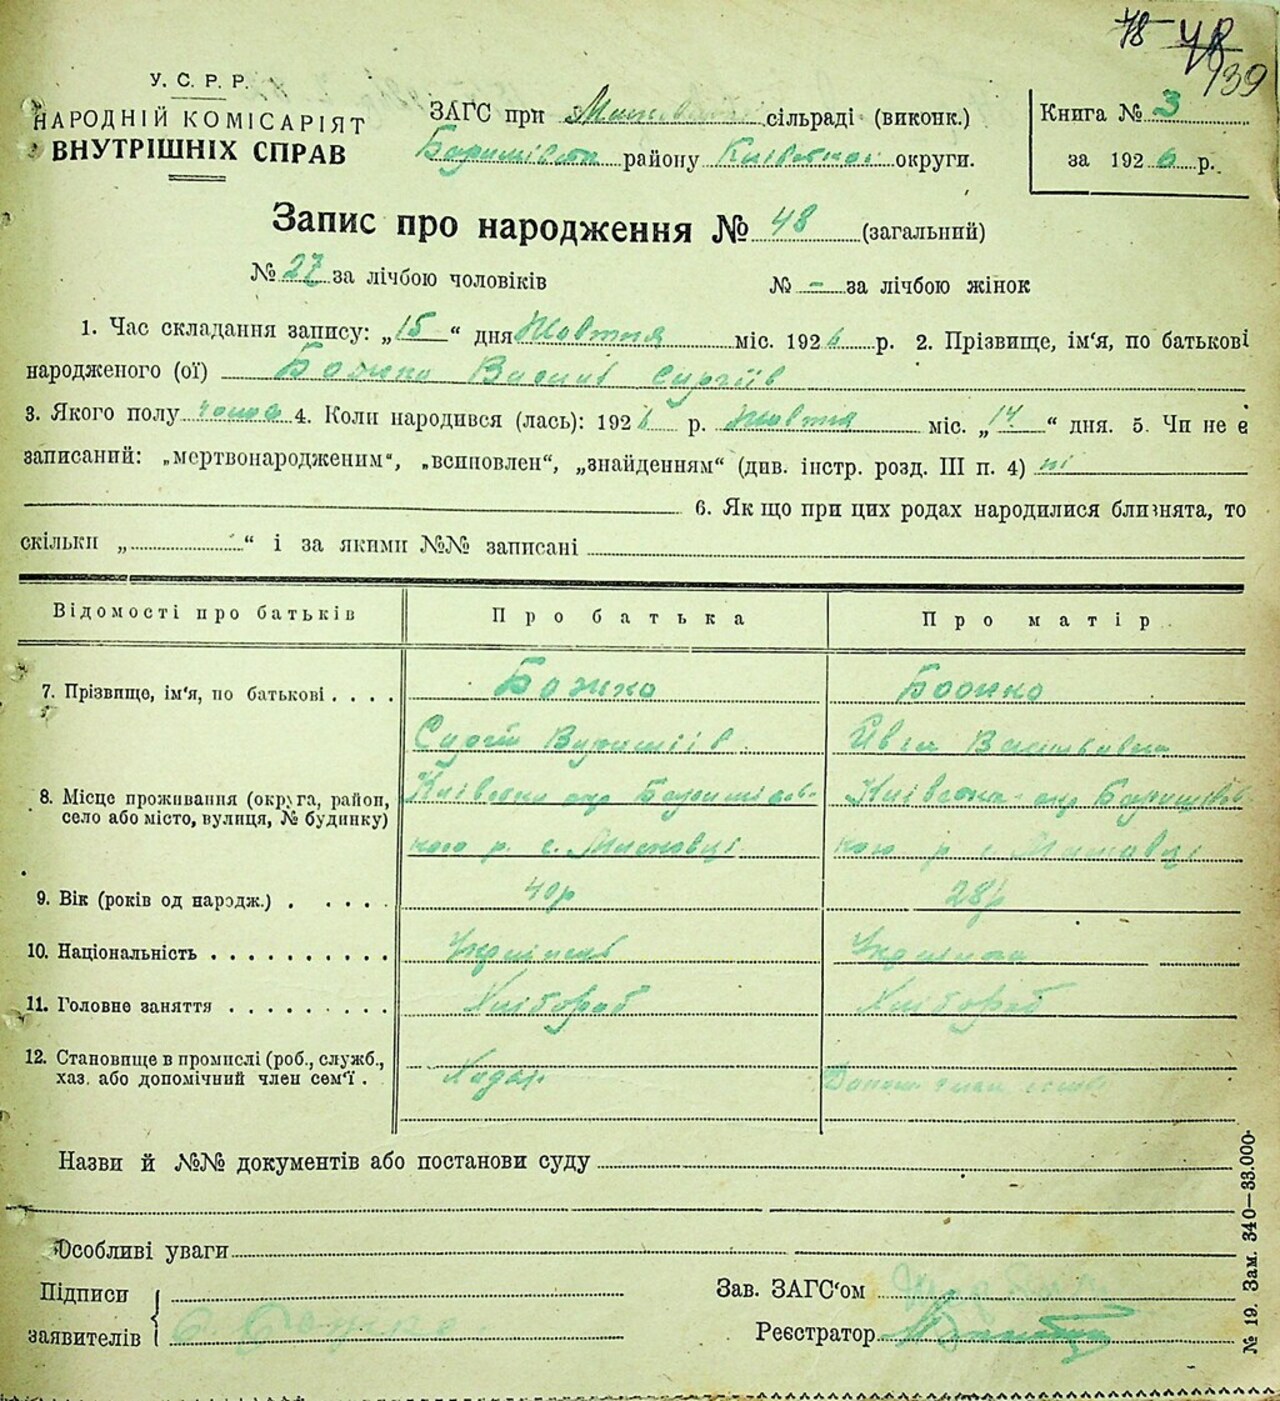 78 48
139
У. С. Р. Р.
НАРОДНІЙ КОМІСАРІЯТ
ВНУТРІШНІХ СПРАВ
ЗАГС при сільраді (виконк.)
району Київської округи.
Книга № 3
за 1926 р.
Запис про народження № 48 (загальний)
№ 27 за лічбою чоловіків № - за лічбою жінок
1. Час складання запису: „15“ дня Жовтня міс. 1926 р. 2. Прізвище, ім'я, по батькові
народженого (ої) Божко Василь Сергіїв
3. Якого полу чолов 4. Коли народився (лась): 1926 р. Жовтня міс. „14“ дня. 5. Чи не є
записаний: „мертвонародженим“, „всиновлен“, „знайденням“ (див. інстр. розд. III п. 4) ні
6. Як що при цих родах народилися близнята, то
скільки „ “ і за якими №№ записані
Відомості про батьків Про батька Про матір
7. Прізвище, ім'я, по батькові . . . . Божко Божко
Сергій Василівна
8. Місце проживання (округа, район,
село або місто, вулиця, № будинку)
Київська окр Баришівсь- Київська окр Баришівсь-
кого р. с. кого р с.
9. Вік (років од народж.) . . . . . 40р 28р
10. Національність . . . . . . . . . . Українець Українка
11. Головне заняття . . . . . . . . . Хлібороб Хлібороб
12. Становище в промислі (роб., служб.,
хаз. або допомічний член сем'ї .
Допом член
Назви й №№ документів або постанови суду
Особливі уваги
Підписи
заявителів С Божко
Зав. ЗАГС'ом
Реєстратор
№ 19. Зам. 340—33.000